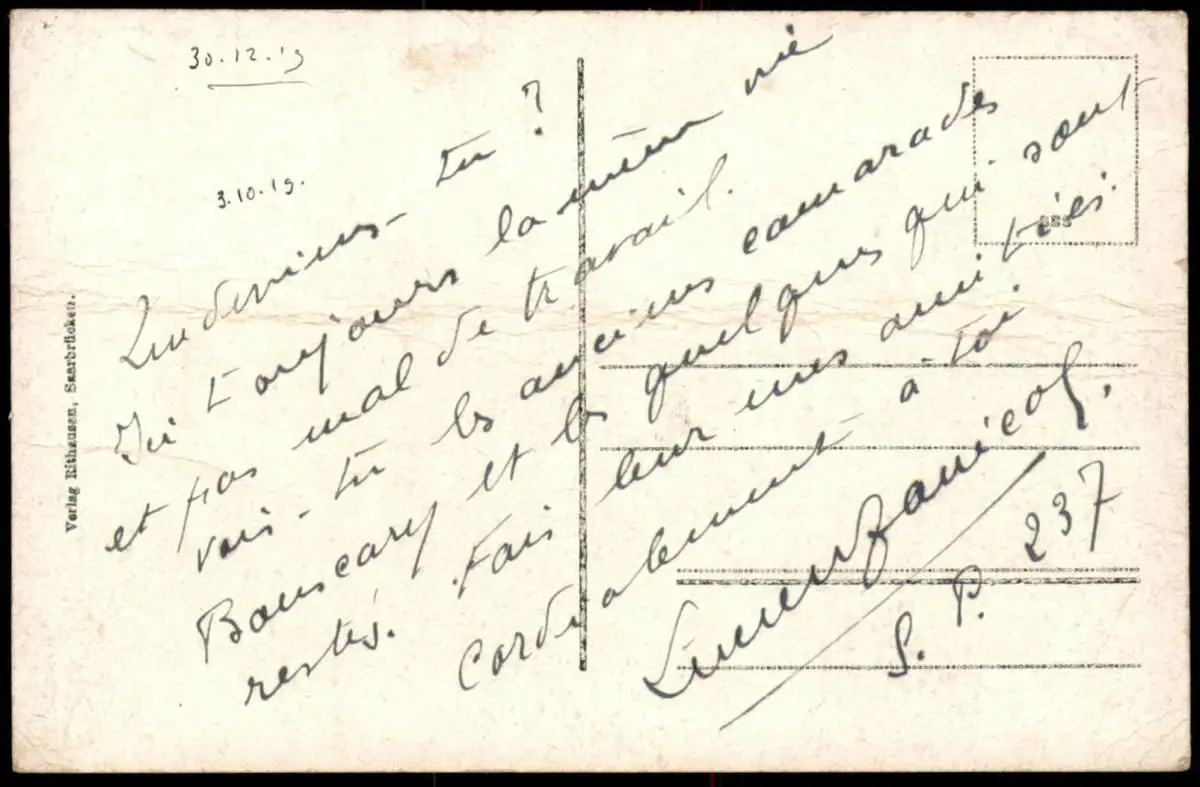 30.12.19
3.10.19.
Que deviens-tu ?
Ici toujours la même vie
et pas mal de travail.
Vois-tu les anciens camarades
Bouscary et les quelques qui sont
restés. Fais leur mes amitiés.
Cordialement à toi.
S. P. 237
Verlag Rithausen, Saarbrücken.